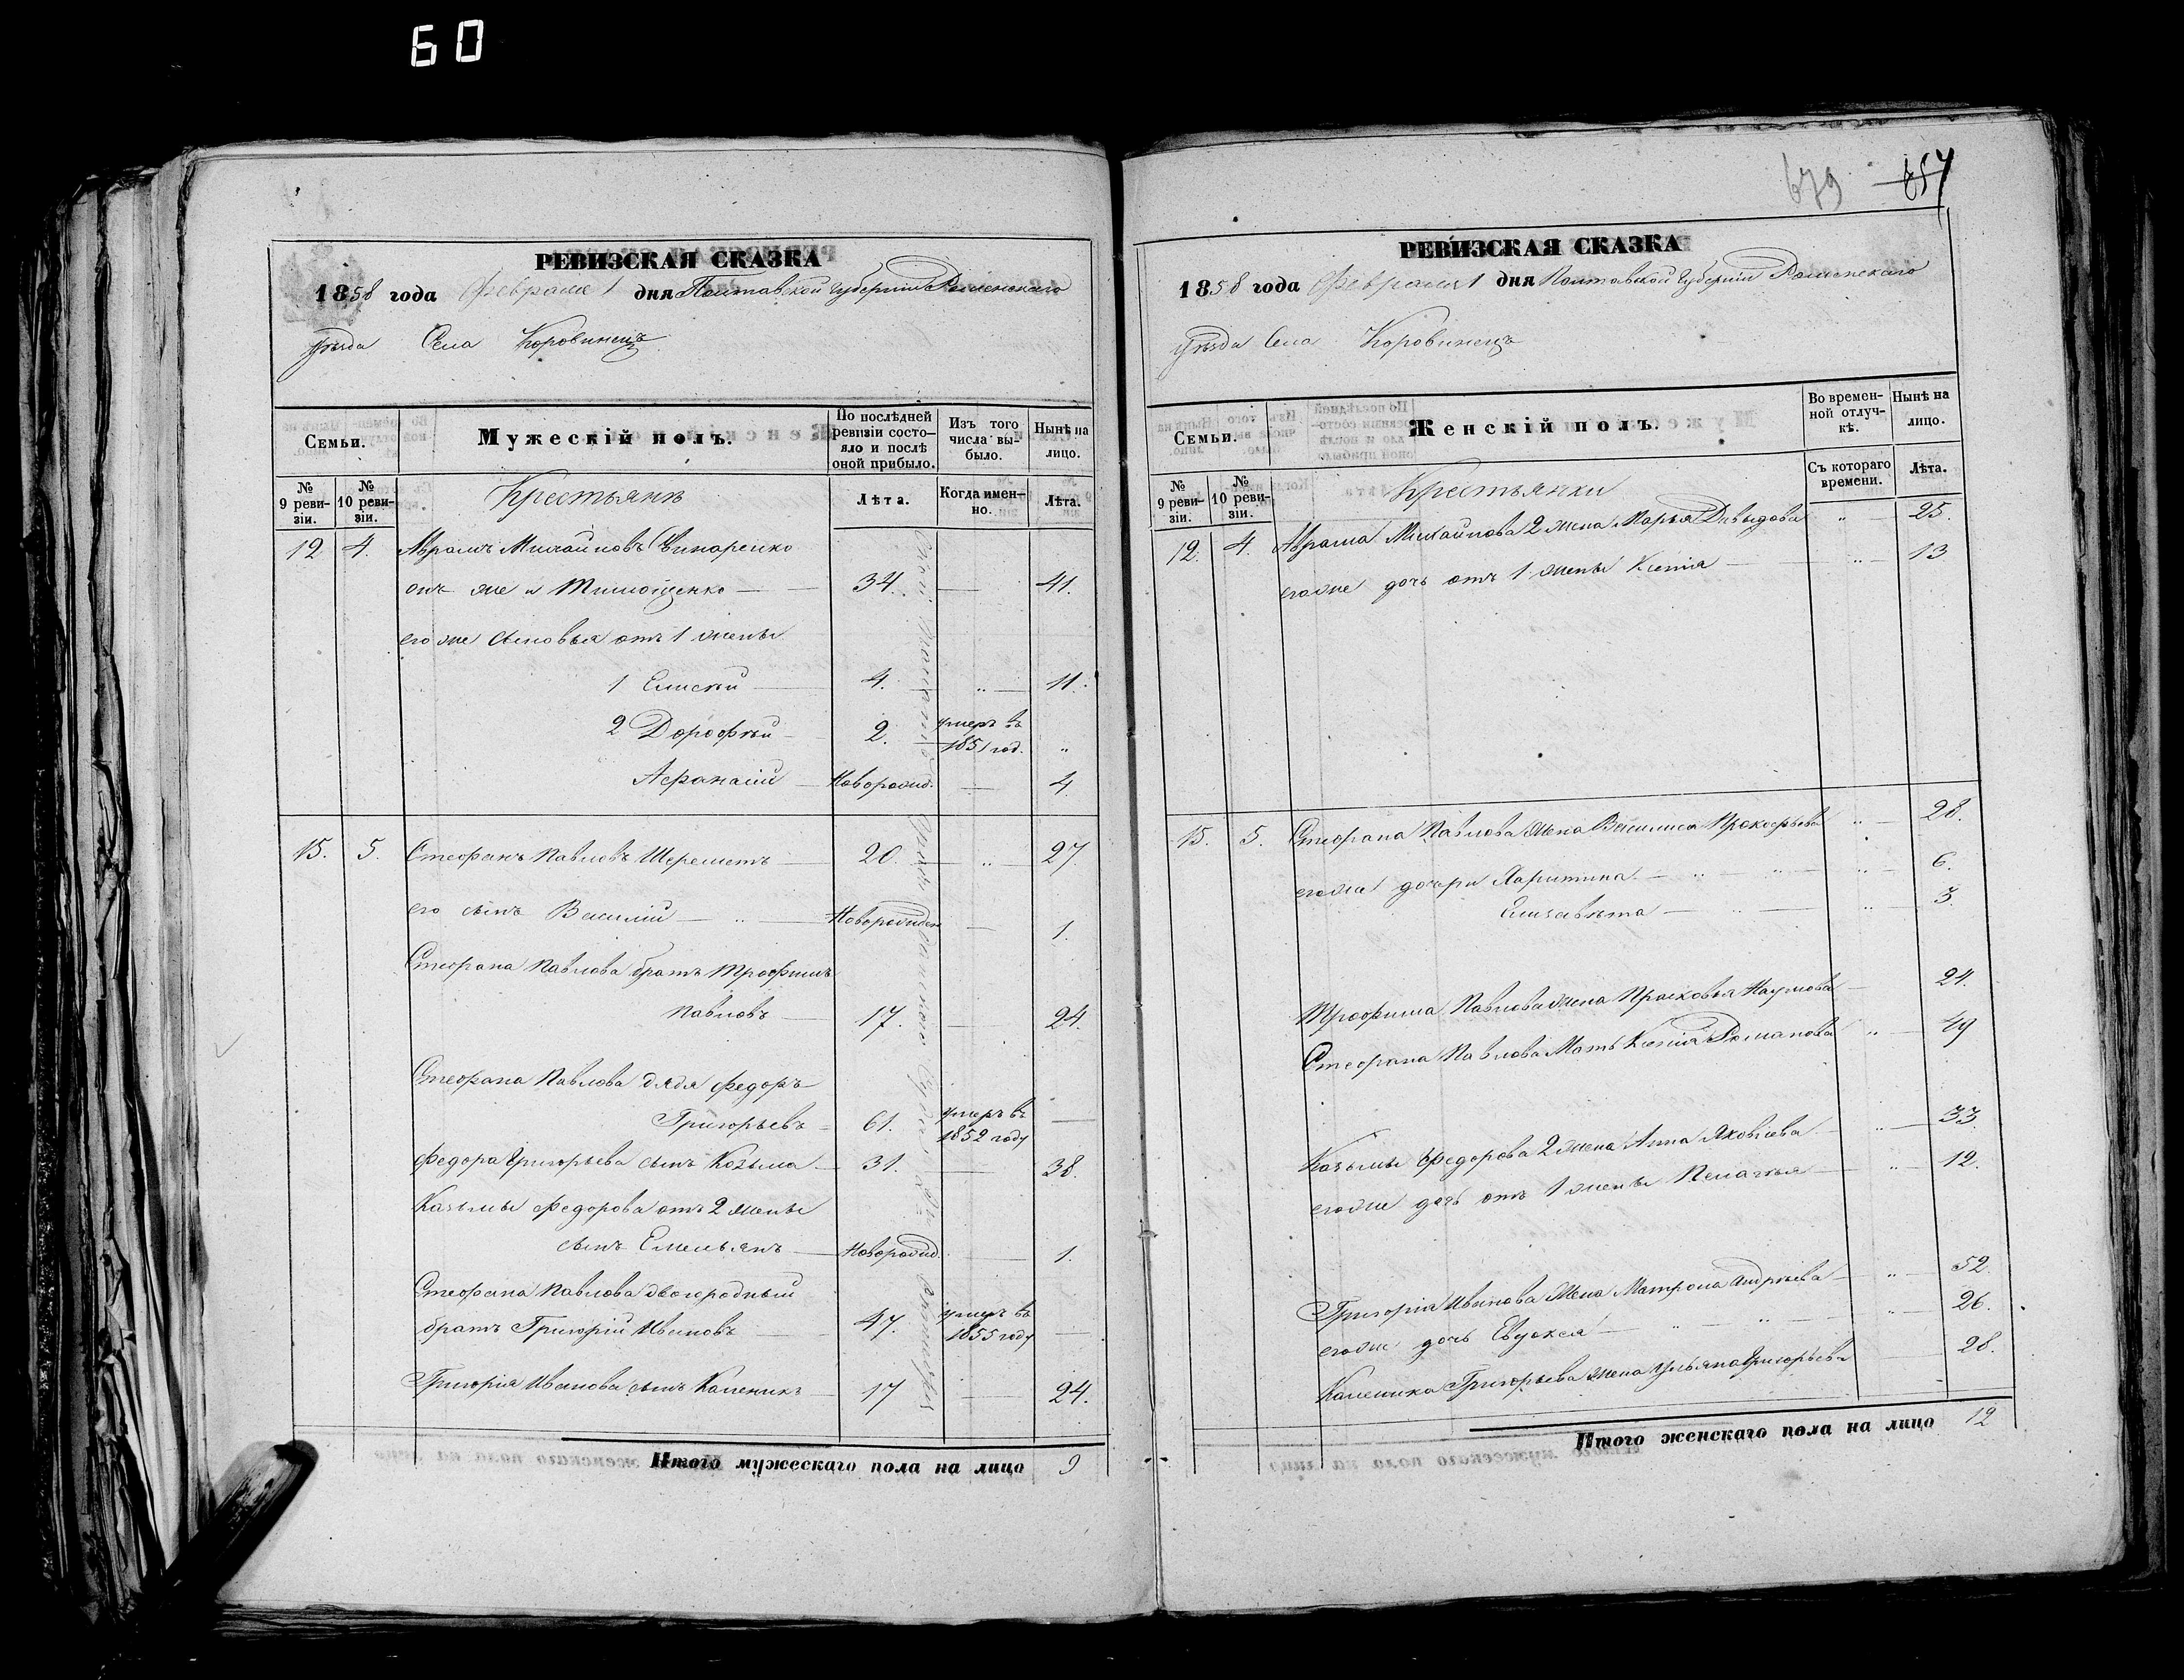 60
РЕВИЗСКАЯ СКАЗКА
1858 года Февраля 1 дня Полтавской губерніи Роменскаго
уѣзда Села Коровинецъ
Семьи.
Мужескій полъ.
По послѣдней ревизіи состояло и послѣ оной прибыло.
Изъ того числа выбыло.
Нынѣ на лицо.
№ 9 ревизіи.
№ 10 ревизіи.
Крестьянъ
Лѣта.
Когда именно.
Лѣта.
12 4. Аврамъ Михайловъ
онъ же и Тимошенко 34. 41.
его же сыновья отъ 1 жены
1 Елисѣй 4. 11.
2 Дорофѣй 2. умеръ въ 1851 год. "
Афанасій Новорожд. 4
15. 5. Стефанъ Павловъ Шереметъ 20. " 27
его сынъ Василій Новорожден 1.
Стефана Павлова братъ Трофимъ
Павловъ 17. 24.
Стефана Павлова дядя Федоръ
Григорьевъ 61. умеръ въ 1852 году
Федора Григорьева сынъ Козьма 31. 38.
Козьмы Федорова отъ 2 жены
сынъ Емельянъ Новорожд. 1.
Стефана Павлова двоюродный
братъ Григорій Ивановъ 47. умеръ въ 1855 году
Григорія Иванова сынъ Каленикъ 17 24.
Итого мужескаго пола на лицо 9
679 657
РЕВИЗСКАЯ СКАЗКА
1858 года Февраля 1 дня Полтавской губерніи Роменскаго
уѣзда Села Коровинецъ
Семьи.
Женскій полъ.
Во временной отлучкѣ.
Нынѣ на лицо.
№ 9 ревизіи.
№ 10 ревизіи.
Крестьянки
Съ котораго времени.
Лѣта.
12. 4. Аврама Михайлова 2 жена Марья Давыдова " 25.
его же дочь отъ 1 жены Ксенія " 13
15. 5. Стефана Павлова жена Василиса Прокофьева " 28.
его же дочери Харитина " 6.
Елизавѣта " 3.
Трофима Павлова жена Прасковья Наумова 24.
Стефана Павлова Мать Ксенія Романова " 49
Козьмы Федорова 2 жена Анна Яковлева " 33.
его же дочь отъ 1 жены Пелагѣя " 12.
Григорія Иванова Жена Матрона Андрѣева " 52.
его же дочь Евдокея " 26.
Каленика Григорьева жена Ульяна Григорьева 28.
Итого женскаго пола на лицо 12